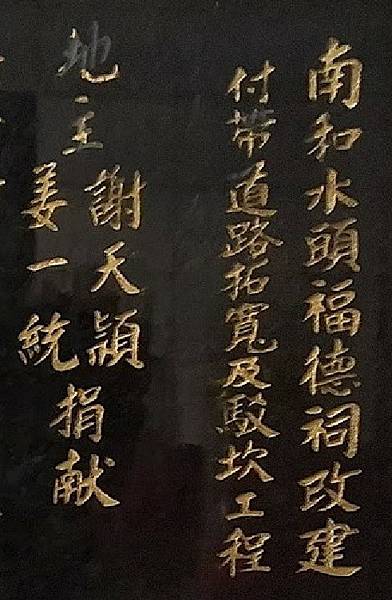 南和水頭福德祠改建
付帶道路拓寬及駁坎工程
地主
謝天頴
姜一統
捐献